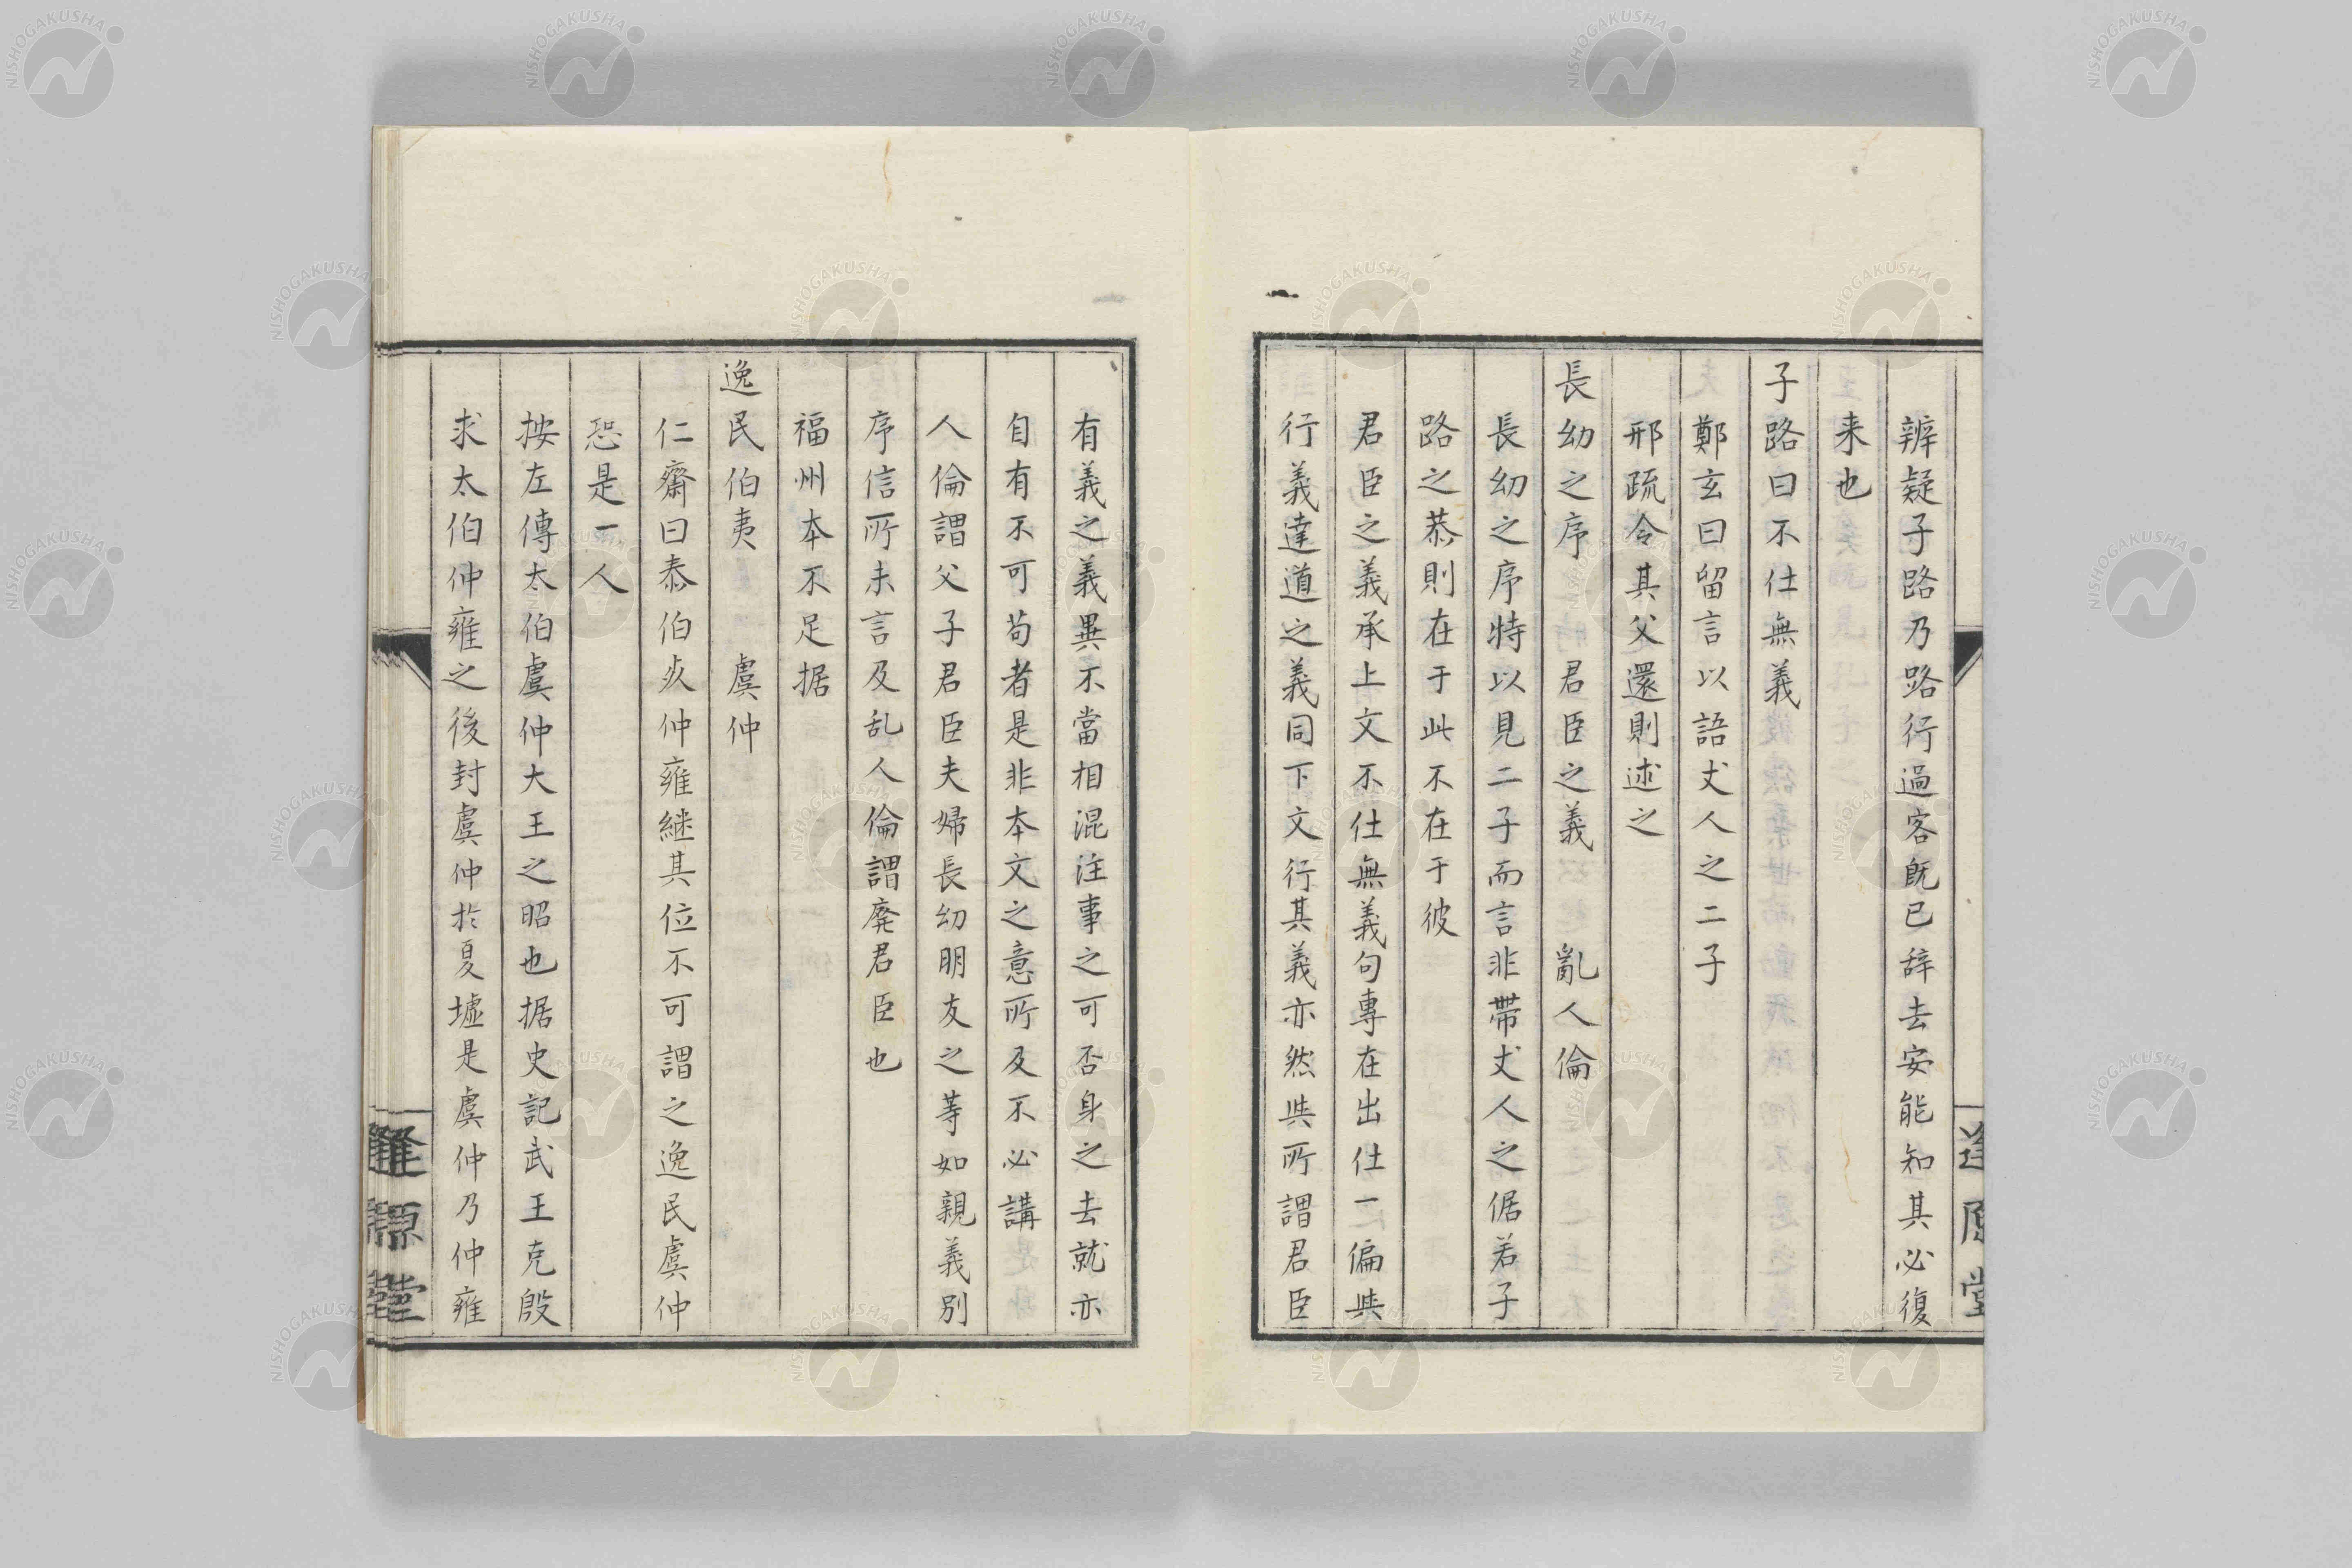 辨疑子路乃路行過客既已辞去安能知其必復
来也
子路曰不仕無義
鄭玄曰留言以語丈人之二子
邢疏令其父還則述之
長幼之序　君臣之義　亂人倫
長幼之序特以見二子而言非帶丈人之倨若子
路之恭則在于此不在于彼
君臣之義承上文不仕無義句專在出仕一偏与
行義達道之義同下文行其義亦然与所謂君臣
有義之義異不當相混注事之可否身之去就亦
自有不可苟者是非本文之意所及不必講
人倫謂父子君臣夫婦長幼朋友之等如親義別
序信所未言及乱人倫謂廃君臣也
福州本不足据
逸民伯夷　虞仲
仁齋曰泰伯　仲雍継其位不可謂之逸民虞仲
恐是一人
按左傳太伯虞仲大王之昭也据史記武王克殷
求太伯仲雍之後封虞仲於夏墟是虞仲乃仲雍
逢原堂
NISHOGAKUSHA